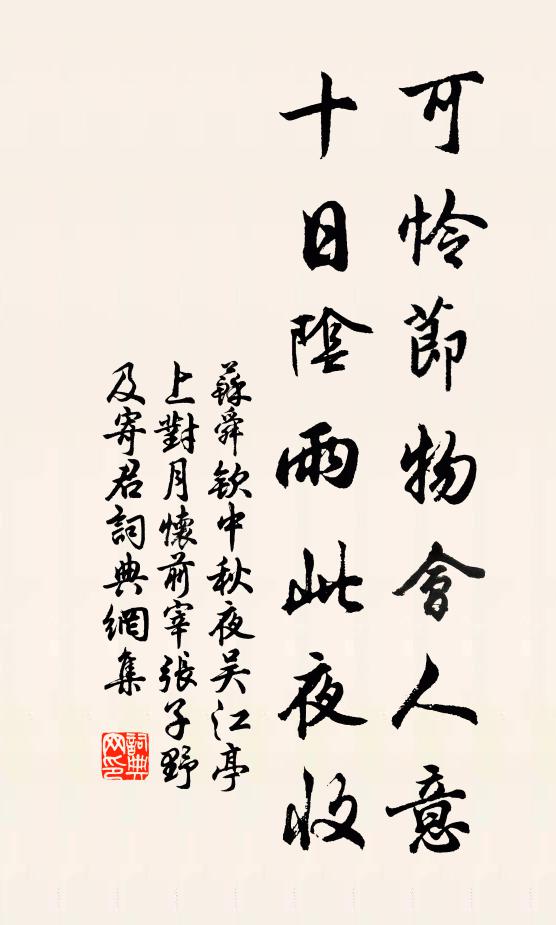 可怜節物會人意
十日陰雨此夜收
蘇舜欽中秋夜吴江亭
上對月懷前宰張子野
及寄君詞典網集
詞典
网印